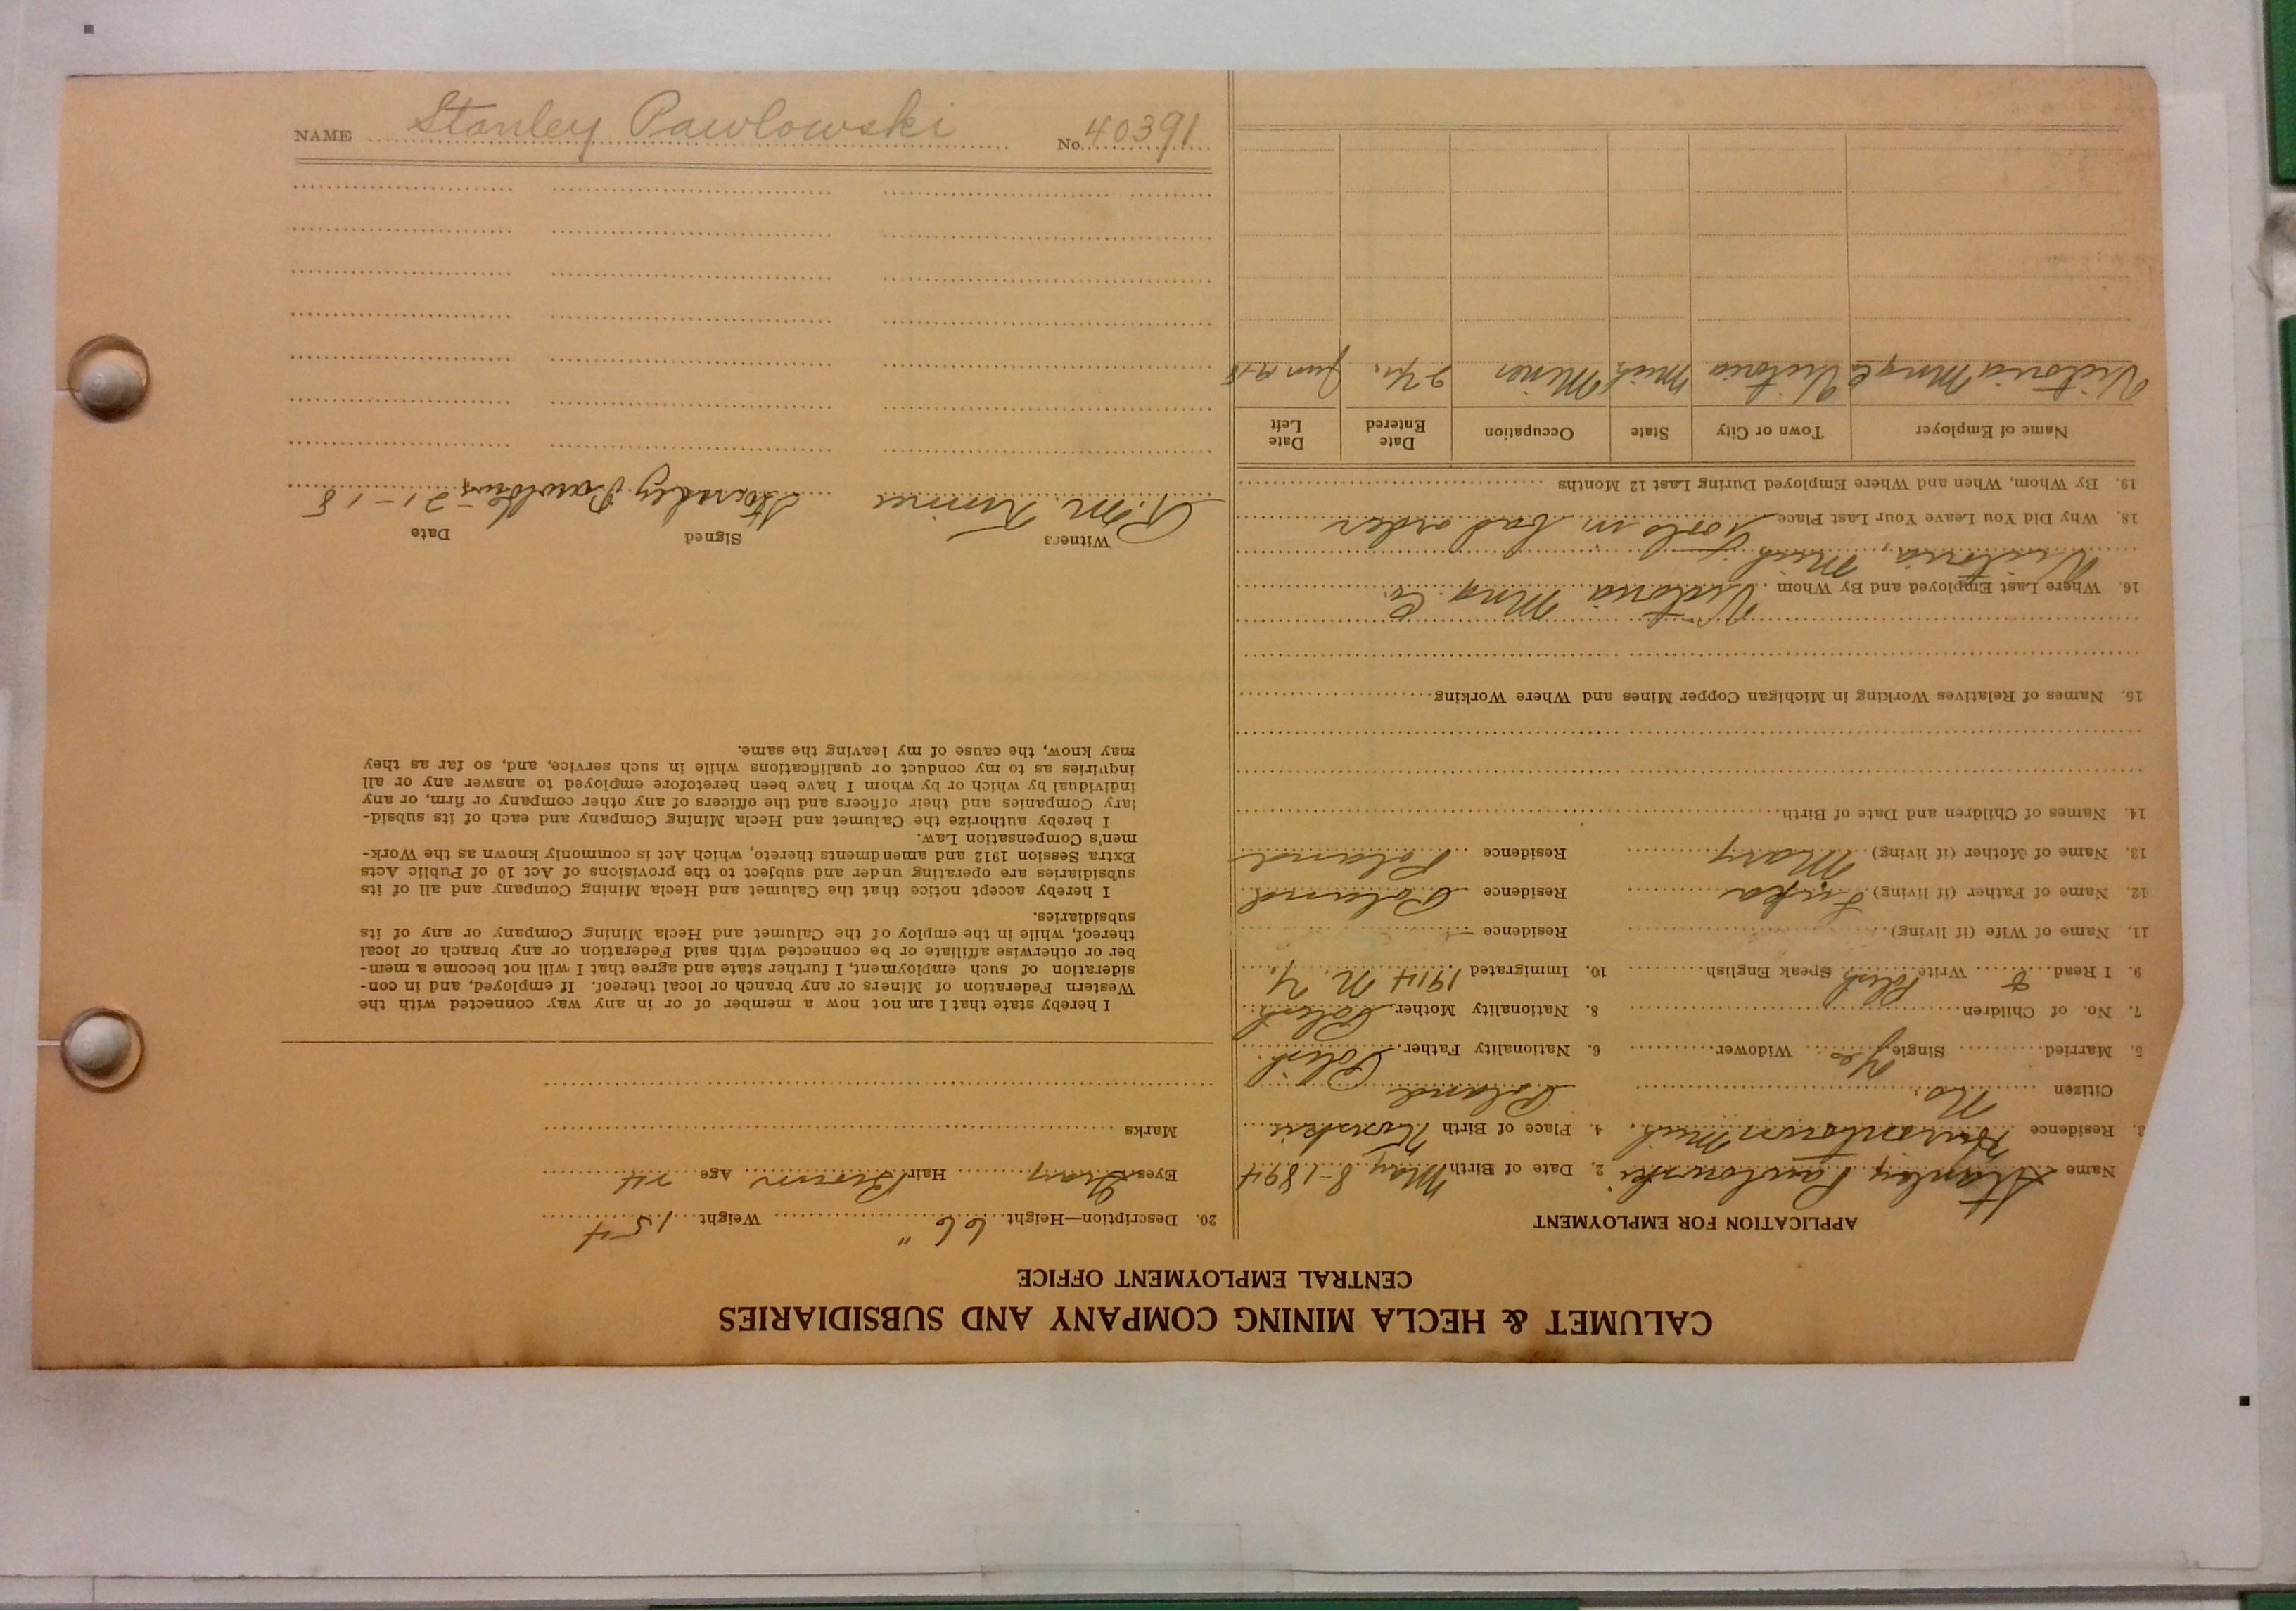 CALUMET & HECLA MINING COMPANY AND SUBSIDIARIES
CENTRAL EMPLOYMENT OFFICE
APPLICATION FOR EMPLOYMENT
Name Stanley Pawlowski 2. Date of Birth May 8-1894
3. Residence Mich. 4. Place of Birth
Citizen No. Poland
5. Married Single Yes Widower 6. Nationality Father Polish
7. No. of Children 8. Nationality Mother Polish
9. I Read & Write Polish Speak English 10. Immigrated 1914 N. Y.
11. Name of Wife (if living) Residence
12. Name of Father (if living) Residence Poland
13. Name of Mother (if living) Mary Residence Poland
14. Names of Children and Date of Birth
15. Names of Relatives Working in Michigan Copper Mines and Where Working
16. Where Last Employed and By Whom Victoria Mng Co.
Victoria, Mich
18. Why Did You Leave Your Last Place in bad order
19. By Whom, When and Where Employed During Last 12 Months
Name of Employer Town or City State Occupation Date Entered Date Left
Victoria Mng Co Victoria Mich Miner 2 yrs. Jun
20. Description—Height 66" Weight 154
Eyes Gray Hair Brown Age 24
Marks
I hereby state that I am not now a member of or in any way connected with the
Western Federation of Miners or any branch or local thereof. If employed, and in con-
sideration of such employment, I further state and agree that I will not become a mem-
ber or otherwise affiliate or be connected with said Federation or any branch or local
thereof, while in the employ of the Calumet and Hecla Mining Company or any of its
subsidiaries.
I hereby accept notice that the Calumet and Hecla Mining Company and all of its
subsidiaries are operating under and subject to the provisions of Act 10 of Public Acts
Extra Session 1912 and amendments thereto, which Act is commonly known as the Work-
men's Compensation Law.
I hereby authorize the Calumet and Hecla Mining Company and each of its subsid-
iary Companies and their officers and the officers of any other company or firm, or any
individual by which or by whom I have been heretofore employed to answer any or all
inquiries as to my conduct or qualifications while in such service, and, so far as they
may know, the cause of my leaving the same.
Witness Signed Date
Stanley 21-18
NAME Stanley Pawlowski No. 40391